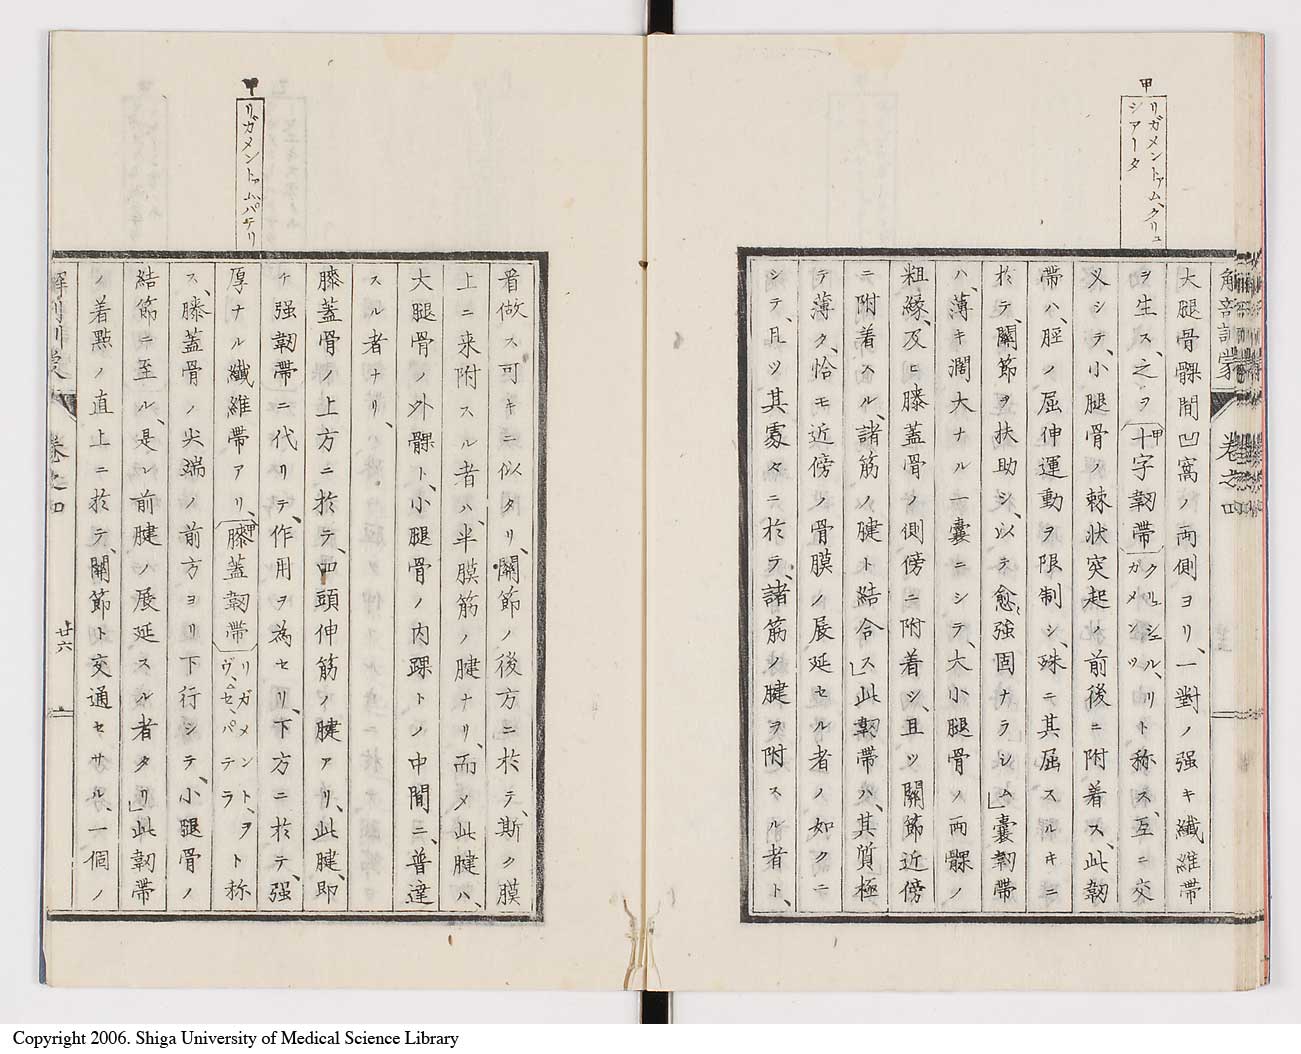 甲
リガメントァム、クリュ
シアータ
解剖訓蒙 卷之四
大腿骨髁間凹窩ノ両側ヨリ、一對ノ强キ纎維帶
ヲ生ス、之ヲ十字韌帶甲クリュシェル、リガメンツト称ス、互ニ交
叉シテ、小腿骨ノ棘状突起ノ前後ニ附着ス、此韌
帶ハ、脛ノ屈伸運動ヲ限制シ、殊ニ其屈スルキニ
於テ、關節ヲ扶助シ、以テ愈强固ナラシム」囊韌帶
ハ、薄キ濶大ナル一囊ニシテ、大小腿骨ノ両髁ノ
粗縁、及ヒ膝蓋骨ノ側傍ニ附着シ、且ツ關節近傍
ニ附着スル、諸筋ノ腱ト結合ス」此韌帶ハ、其質極
テ薄ク、恰モ近傍ノ骨膜ノ展延セル者ノ如クニ
シテ、且ツ其處々ニ於テ、諸筋ノ腱ヲ附スル者ト、
甲
リガメントァム、パテリ
看做ス可キニ似タリ、關節ノ後方ニ於テ、斯ク膜
上ニ来附スル者ハ、半膜筋ノ腱ナリ、而メ此腱ハ、
大腿骨ノ外髁ト、小腿骨ノ内踝トノ中間ニ、普達
スル者ナリ、
膝蓋骨ノ上方ニ於テ、四頭伸筋ノ腱アリ、此腱、即
チ强韌帶ニ代リテ、作用ヲ為セリ、下方ニ於テ、强
厚ナル纎維帶アリ、膝蓋韌帶甲リガメント、ヲヴ、ゼ、パテラト称
ス、膝蓋骨ノ尖端ノ前方ヨリ下行シテ、小腿骨ノ
結節ニ至ル、是レ前腱ノ展延スル者タリ」此韌帶
ノ着點ノ直上ニ於テ、關節ト交通セサル、一個ノ
解剖訓蒙 卷之四 廿六
Copyright 2006. Shiga University of Medical Science Library